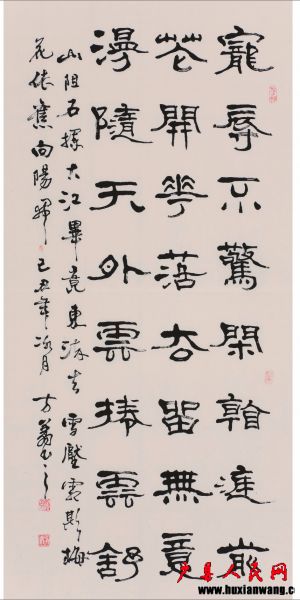 寵辱不驚閑看庭前
花開華落去留無意
漫隨天外雲捲雲舒
山阻石擋大江畢竟東流去雪壓霜欺梅
花依舊向陽開 己丑年冬月 方
户县人民网
www.huxianwang.com